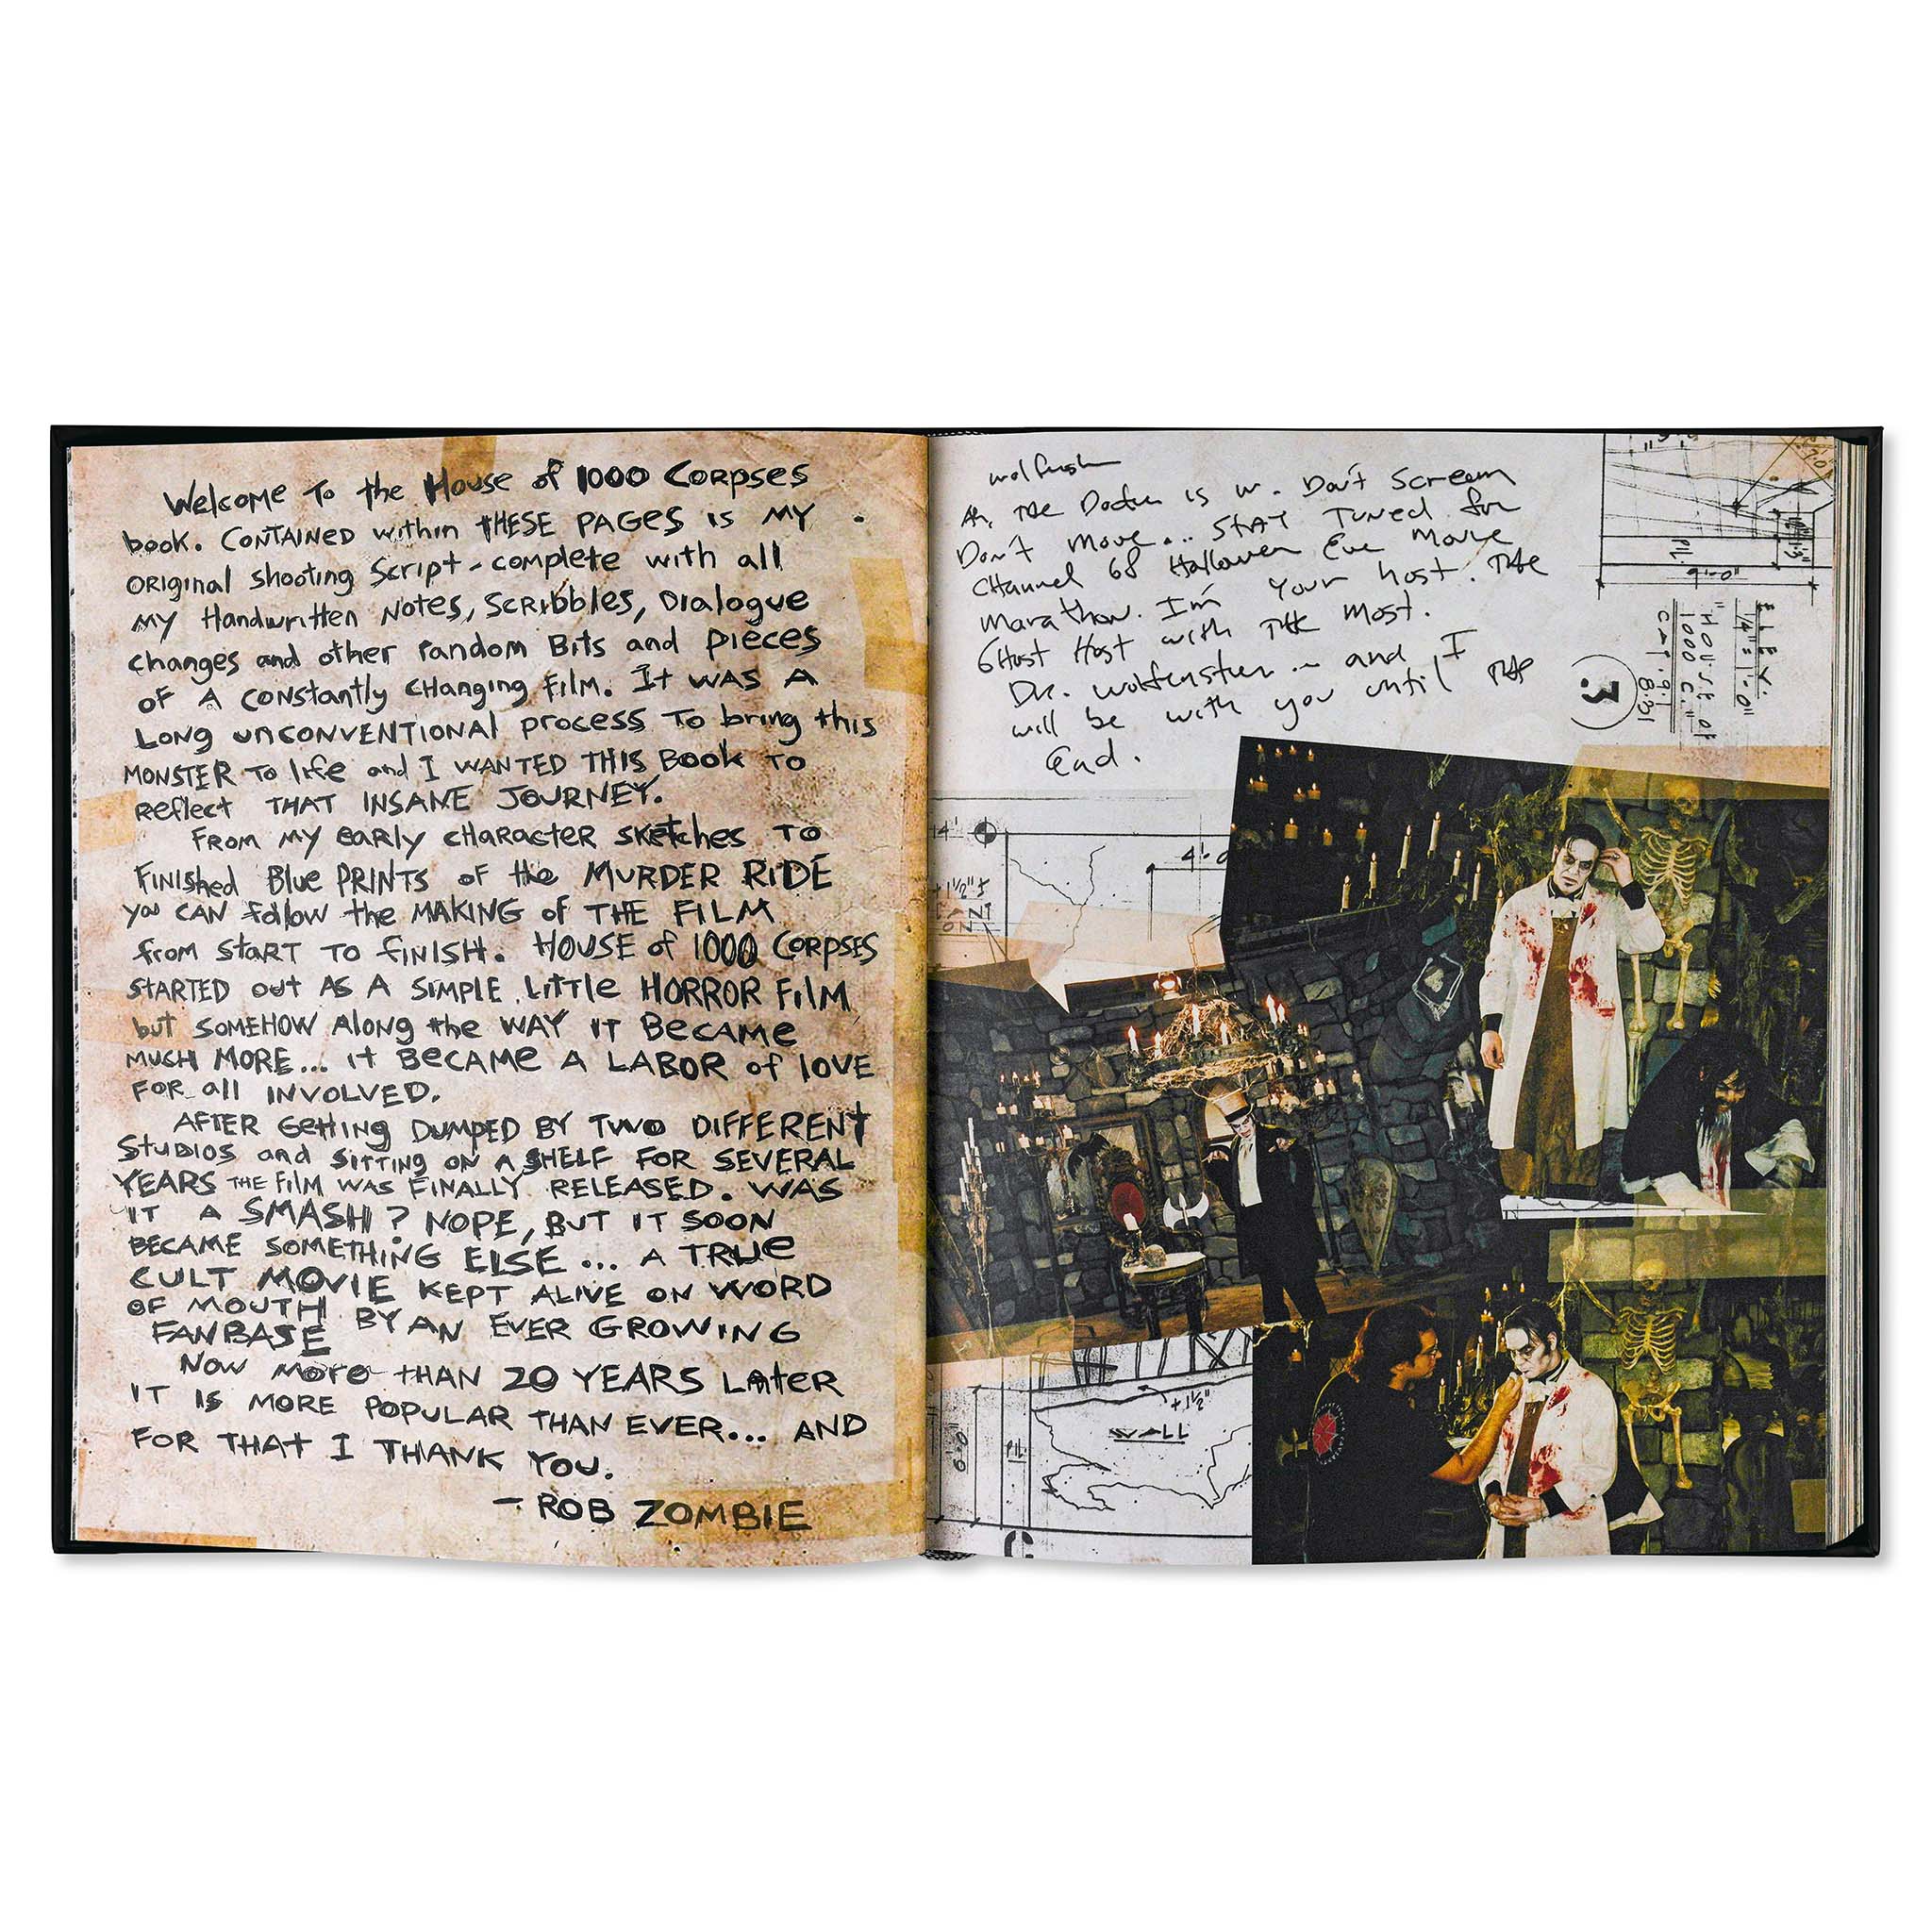 Welcome To the House of 1000 Corpses
book. CONTAINED within THESE PAGES is MY
ORIGINAL shooting Script - complete with all
MY Handwritten Notes, SCRibbles, Dialogue
changes and other random Bits and pieces
OF A constantly CHANging Film. It WAS A
LONg UNCONVENTIONAL process To bring this
MONSTER To life and I WANTED THIS Book TO
Reflect THAT INSANE JOURNEY.
FROM MY early CHARACTER sketches TO
Finished Blue PRINTS OF the MURDER RIDE
you CAN follow the MAKING of THE FILM
from START TO FINISH. HOUSE of 1000 CORPSES
STARTED out AS A SIMPLE Little HORROR Film
but SOMEHOW Along the WAY IT BECAME
MUCH MORE... It BECAME A LABOR of LOVE
FOR all INVOLVED.
AFTER GettINg DUMPED BY TWO DIFFERENT
STUDIOS and SITTING ON A SHELF FOR SEVERAL
YEARS THE FILM WAS FINALLY RELEASED. WAS
IT A SMASH? NOPE, BUT IT SOON
BECAME SOMETHING ELSE... A TRUe
CULT MOVIE KEPT ALIVE ON WORD
OF MOUTH BY AN EVER GROWING
FANBASE
NOW MORe THAN 20 YEARS LAter
IT IS MORE POPULAR THAN EVER... AND
FOR THAT I THANK YOU.
- ROB ZOMBIE
Ah, THE Doctor is in. Don't Scream
Don't move... STAY TUNED for
Channel 68 Halloween Eve Movie
Marathon. I'm Your host. THE
GHost Host with THE Most.
DR. Wolfenstein ... and I
will be with you until THE
End.
ELEV.
1/4" = 1'-0"
"HOUSE OF
1000 C."
3
6'-0"
PL.
14'
+1 1/2"
WALL
PL.
C